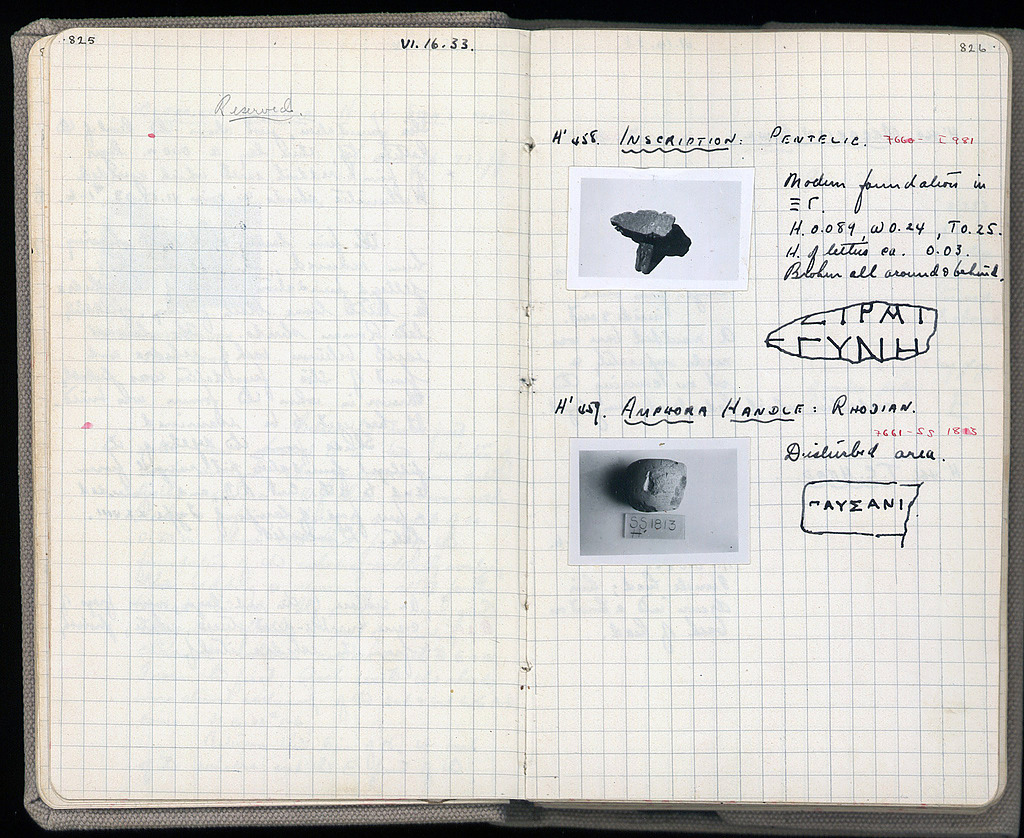 825
VI. 16. 33.
Reserved.
826
H' 458. INSCRIPTION: PENTELIC. 7660 - I 981
Modern foundation in
ΞΓ.
H. 0.089, W 0.24, T 0.25.
H. of letters ca. 0.03.
Broken all around & behind.
ΣΤΡΑΤ
ΓΥΝΗ
H' 459. AMPHORA HANDLE: RHODIAN.
7661 - SS 1813
Disturbed area.
ΠΑΥΣΑΝΙ
SS 1813